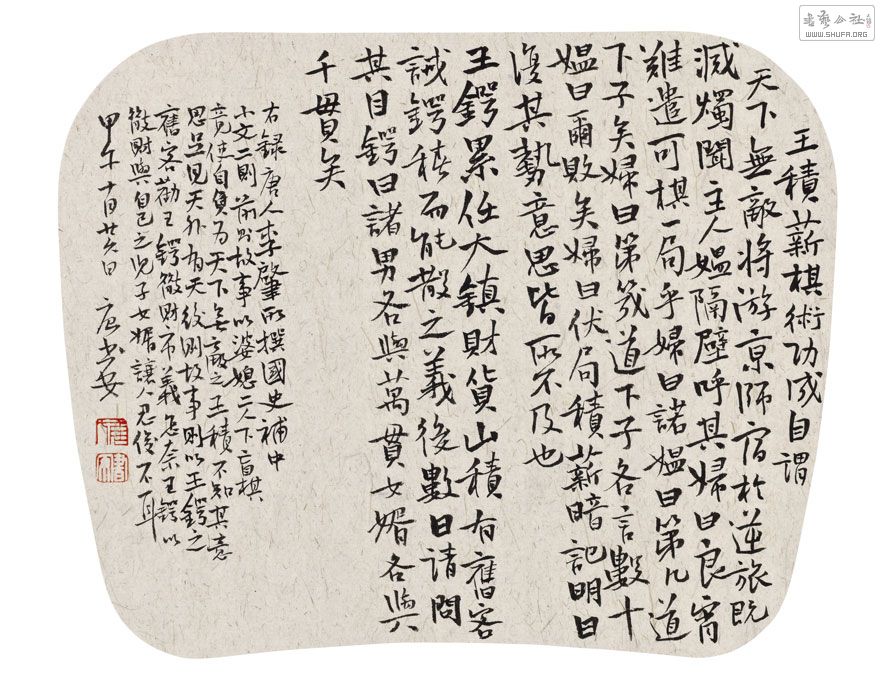 王積薪棋術功成自謂
天下無敵将游京師宿於逆旅既
滅燭聞主人媼隔壁呼其婦曰良宵
難遣可棋一局乎婦曰諾媼曰第几道
下子矣婦曰第幾道下子各言數十
媼曰爾敗矣婦曰伏局積薪暗記明日
復其勢意思皆所不及也
王鍔累任大鎮財貨山積有舊客
誡鍔積而能散之義後數日請問
其目鍔曰諸男各與萬貫女婿各與
千貫矣
右録唐人李肇所撰國史補中
小文二則前則故事以婆媳二人下盲棋
竟使自負为天下無敵之王積不知其意
思足見天外有天後則故事則以王鍔之
舊客勸王鍔散財布義怎奈王鍔以
散財與自己之兒子女婿讓人忍俊不耳
甲午十月廿六日
書藝公社
WWW.SHUFA.ORG